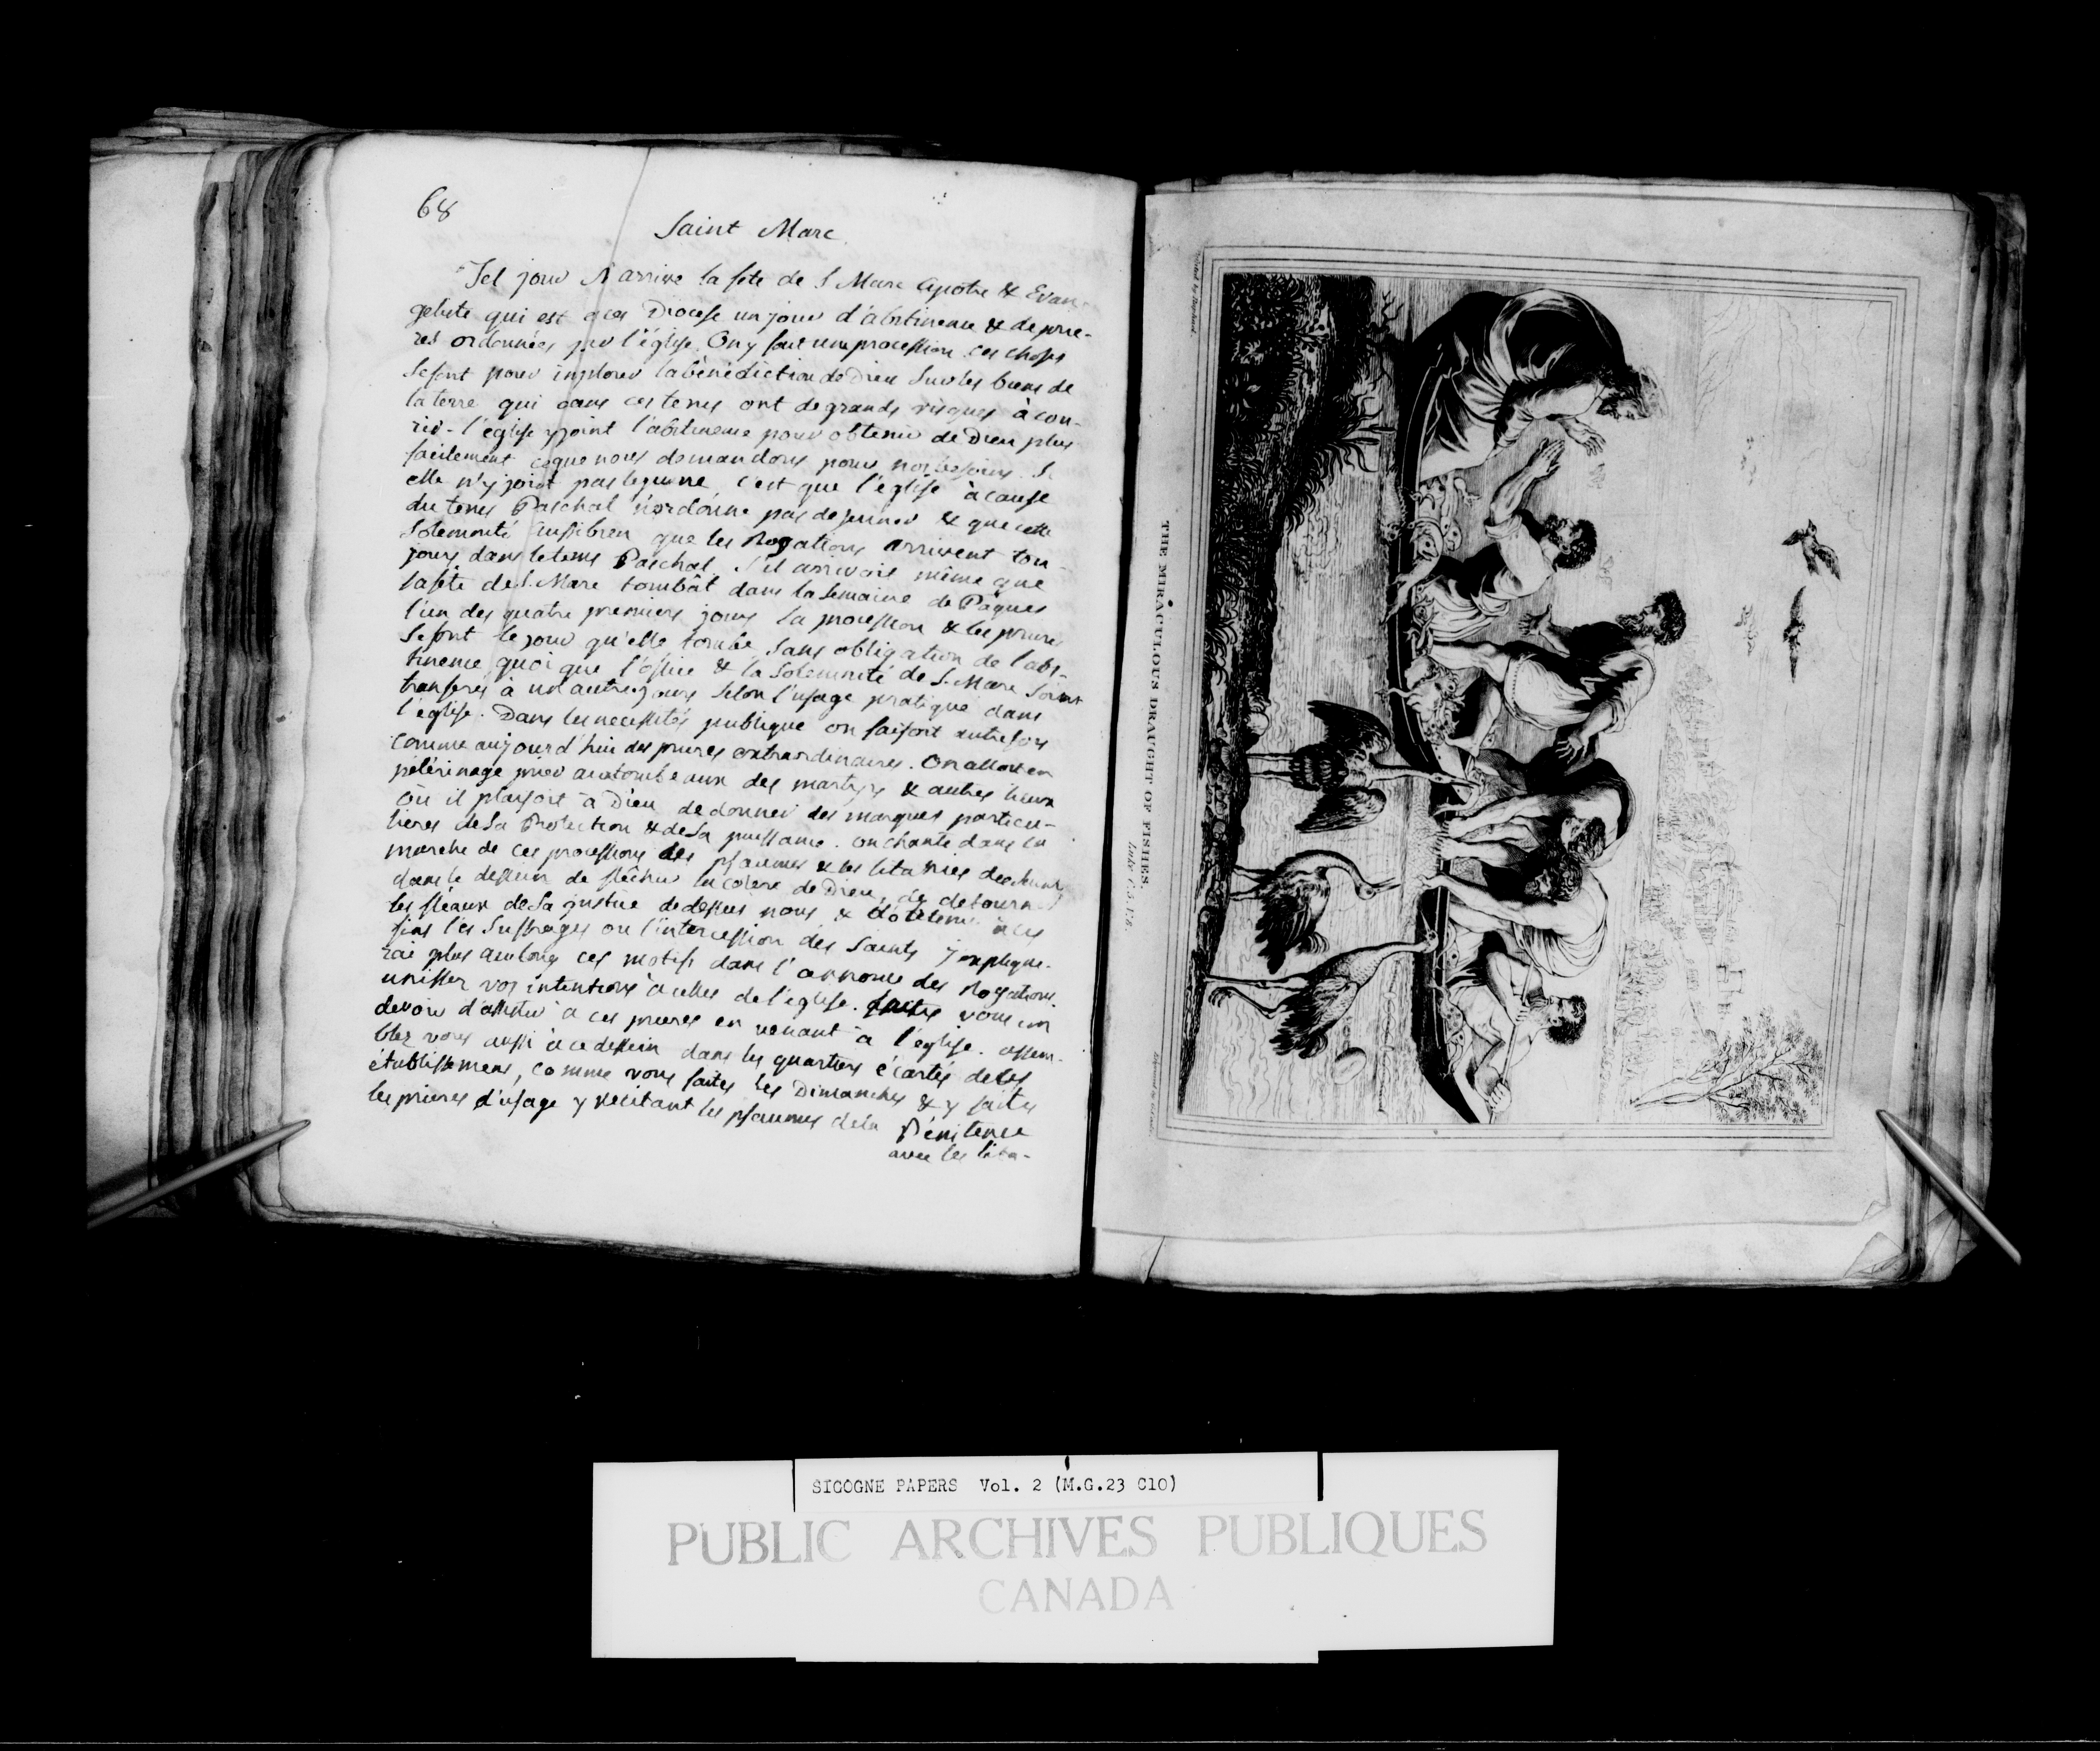 68
Saint Marc
Tel jour N arrive la fete de S Marc Apotre & Evan-
geliste qui est en ces Diocese un jour d'abstinence & de prie-
res ordonnées par l'église. On y fait une procession. ces choses
se font pour implorer la bénédiction de Dieu sur les biens de
la terre qui dans ces tems ont de grands risques à cou-
rir - l'eglise y joint l'abstinence pour obtenir de Dieu plus
facilement ce que nous demandons pour nos besoins. Si
elle n'y joint pas le jeune c'est que l'eglise à cause
du tems Paschal n'ordonne pas de jeuner & que cette
solemnité aussi bien que les Rogations arrivent tou-
jours dans le tems Paschal. S'il arrivoit même que
la fete de S. Marc tombât dans la semaine de Pâques
l'un des quatre premiers jours la procession & les prieres
se font le jour qu'elle tombe sans obligation de l'abs-
tinence quoi que l'office & la solemnité de S. Marc soient
transferés à un autre jours selon l'usage pratique dans
l'eglise. Dans les necessités publique on faisoit autrefois
comme aujourd'hui des prieres extraordinaires. On alloit en
pélérinage prier aux tombeaux des martyrs & autres lieux
où il plaisoit à Dieu de donner des marques particu-
lieres de sa Protection & de sa puissance. on chante dans la
marche de ces processions des psaumes & les litanies des Saints
dans le dessein de fléchir la colere de Dieu, de detourner
les fléaux de sa justice de dessus nous & d'obtenir à ces
fins les suffrages ou l'intercession des Saints j'explique-
rai plus au long ces motifs dans l'annonce des Rogations.
unissez vos intentions à celles de l'eglise. faites vous un
devoir d'assister à ces prieres en venant à l'église. assem-
blez vous aussi à ce dessein dans les quartiers écartés de les
établissemens, comme vous faites les Dimanches & y faites
les prieres d'usage y recitant les psaumes de la Pénitence
avec les lita-
THE MIRACULOUS DRAUGHT OF FISHES.
Luke C.5.
SICOGNE PAPERS Vol. 2 (M.G.23 C10)
PUBLIC ARCHIVES PUBLIQUES
CANADA